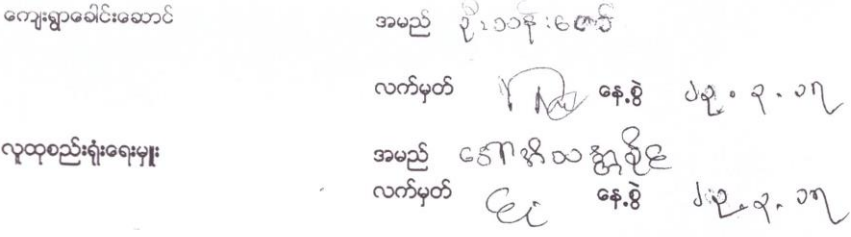 ကျေးရွာခေါင်းဆောင် အမည် ဦးသန်းဇော်
လက်မှတ် နေ့စွဲ ၂၃.၃.၁၇
လူထုစည်းရုံးရေးမှူး အမည်
လက်မှတ် နေ့စွဲ ၂၃.၃.၁၇